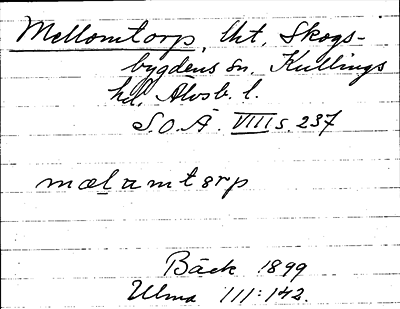 Mellomtorp, lht, Skogs-
bygdens sn. Kullings
hd, Älvsb. l.
S.O.Ä. VIII s. 237
mælamtorp
Bäck 1899
Ulma 111:142.